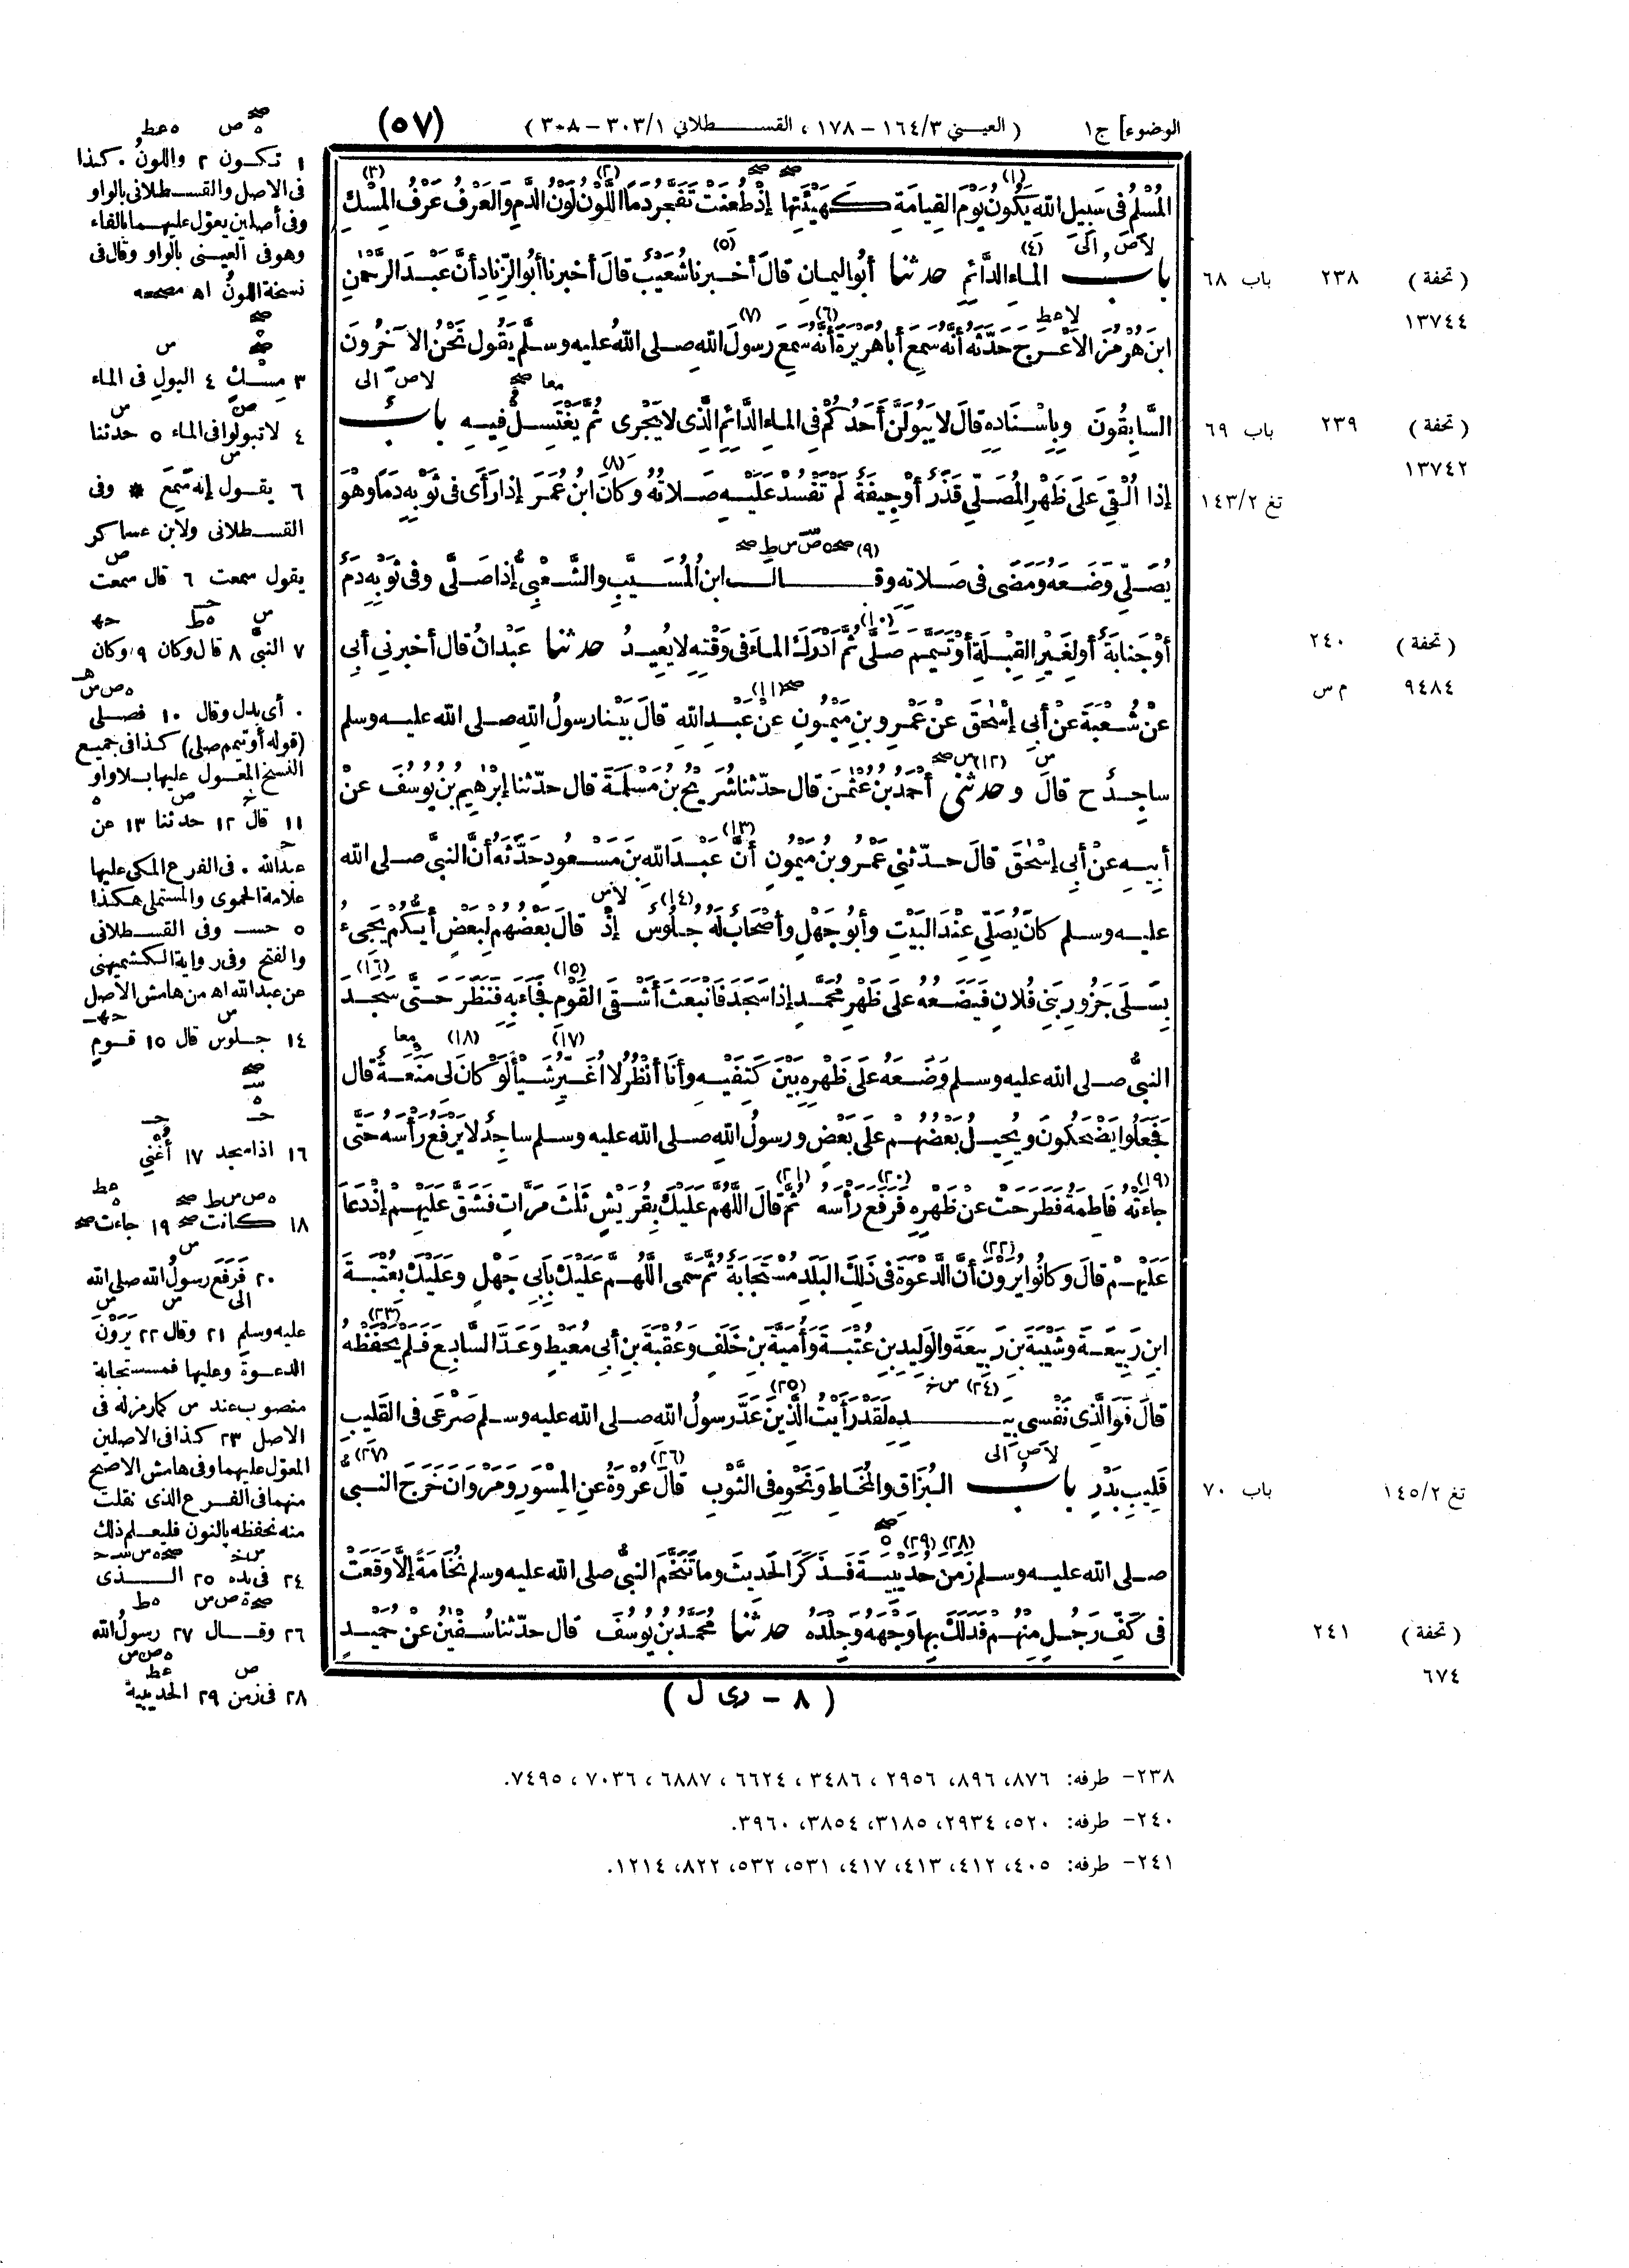 الوضوء] ج١ (العيني ١٦٤/٣ - ١٧٨، القسطلاني ٣٠٣/١ - ٣٠٨) (٥٧)
المُسْلِمُ فى سَبِيلِ اللهِ يَكُونُ يَوْمَ القِيامَةِ كَهَيْئَتِها إذْ طُعِنَتْ تَفَجَّرُ دَمًا اللَّوْنُ لَوْنُ الدَّمِ والعَرْفُ عَرْفُ المِسْكِ
باب الماءِ الدَّائِمِ حدثنا أبُو اليمانِ قالَ أخْبرنا شُعَيْبٌ قالَ أخبرنا أبُو الزِّنادِ أنَّ عَبْدَ الرَّحْمنِ
ابنَ هُرْمُزَ الأَعْرَجَ حَدَّثَهُ أنَّهُ سَمِعَ أباهُرَيْرَةَ أنَّهُ سَمِعَ رسولَ اللهِ صلى اللهُ عليه وسلَّمَ يَقُولُ نَحْنُ الآخِرُونَ
السَّابِقُونَ وبِإسْنادِهِ قالَ لا يَبُولَنَّ أحَدُكُمْ فى الماءِ الدَّائِمِ الَّذِى لا يَجْرِى ثُمَّ يَغْتَسِلُ فِيهِ بابٌ
إذا أُلْقِىَ عَلَى ظَهْرِ المُصَلِّى قَذَرٌ أوْ جِيفَةٌ لَمْ تَفْسُدْ عَلَيْهِ صَلاتُهُ وكانَ ابنُ عُمَرَ إذا رَأى فى ثَوْبِهِ دَمًا وهْوَ
يُصَلِّى وضَعَهُ ومَضَى فى صَلاتِهِ وقال ابنُ المُسَيَّبِ والشَّعْبِىُّ إذا صَلَّى وفى ثَوْبِهِ دَمٌ
أوْ جَنابَةٌ أو لِغَيْرِ القِبْلَةِ أوْ تَيَمَّمَ صَلَّى ثُمَّ أدْرَكَ الماءَ فى وَقْتِهِ لا يُعِيدُ حدثنا عَبْدانُ قال أخبرنى أبى
عَنْ شُعْبَةَ عَنْ أبى إسْحقَ عَنْ عَمْرِو بنِ مَيْمُونٍ عن عبدِ اللهِ قالَ بَيْنا رسولُ اللهِ صلى الله عليه وسلم
ساجِدٌ ح قالَ وحدثنى أحمدُ بنُ عُثْمنَ قال حدّثنا شُرَيْحُ بنُ مَسْلَمَةَ قال حدّثنا إبْرهِيمُ بنُ يُوسُفَ عَنْ
أبِيهِ عَنْ أبى إسْحقَ قالَ حدّثنى عَمْرُو بنُ مَيْمُونٍ أنَّ عَبْدَ اللهِ بنَ مَسْعُودٍ حَدَّثَهُ أنَّ النبىَّ صلى الله
عليه وسلم كانَ يُصَلِّى عِنْدَ البَيْتِ وأبُو جَهْلٍ وأصْحابٌ لَهُ جُلُوسٌ إذْ قالَ بَعْضُهُمْ لِبَعْضٍ أيُّكُمْ يَجِىءُ
بِسَلَى جَزُورِ بَنِى فُلانٍ فَيَضَعُهُ عَلَى ظَهْرِ مُحَمَّدٍ إذا سَجَدَ فانْبَعَثَ أشْقَى القَوْمِ فجاءَ بِهِ فَنَظَرَ حَتَّى سَجَدَ
النبىُّ صلى الله عليه وسلم وضَعَهُ عَلَى ظَهْرِهِ بَيْنَ كَتِفَيْهِ وأنا أنْظُرُ لا أُغَيِّرُ شَيْأً لَوْ كانَ لى مَنَعَةٌ قال
فَجَعَلُوا يَضْحَكُونَ ويُحِيلُ بَعْضُهُمْ عَلَى بَعْضٍ ورسولُ اللهِ صلى الله عليه وسلم ساجِدٌ لا يَرْفَعُ رَأسَهُ حَتَّى
جاءَتْهُ فاطِمَةُ فَطَرَحَتْ عن ظَهْرِهِ فَرَفَعَ رَأْسَهُ ثُمَّ قالَ اللَّهُمَّ عَلَيْكَ بِقُرَيْشٍ ثَلثَ مَرَّاتٍ فَشَقَّ عَلَيْهِمْ إذْ دَعا
عَلَيْهِمْ قالَ وكانُوا يُرَوْنَ أنَّ الدَّعْوَةَ فى ذلكَ البَلَدِ مُسْتَجابَةٌ ثُمَّ سَمَّى اللَّهُمَّ عَلَيْكَ بِأَبِى جَهْلٍ وعَلَيْكَ بِعُتْبَةَ
ابنِ رَبِيعَةَ وشَيْبَةَ بنِ رَبِيعَةَ والوَلِيدِ بنِ عُتْبَةَ وأُمَيَّةَ بنِ خَلَفٍ وعُقْبَةَ بنِ أبى مُعَيْطٍ وعَدَّ السَّابِعَ فَلَمْ يَحْفَظْهُ
قالَ فَوَالَّذِى نَفْسِى بِيَدِهِ لَقَدْ رَأَيْتُ الَّذِينَ عَدَّ رسولُ اللهِ صلى الله عليه وسلم صَرْعَى فى القَلِيبِ
قَلِيبِ بَدْرٍ باب البُزَاقِ والمُخَاطِ ونَحْوِهِ فى الثَّوْبِ قالَ عُرْوَةُ عنِ المِسْوَرِ ومَرْوانَ خَرَجَ النبىُّ
صلى الله عليه وسلم زَمَنَ حُدَيْبِيَةَ فَذَكَرَ الحَدِيثَ وما تَنَخَّمَ النبىُّ صلى الله عليه وسلم نُخَامَةً إلَّا وقَعَتْ
فى كَفِّ رَجُلٍ مِنْهُمْ فَدَلَكَ بِها وَجْهَهُ وجِلْدَهُ حدثنا مُحَمَّدُ بنُ يُوسُفَ قال حدّثنا سُفْينُ عنْ حُمَيْدٍ
(٨ - رى ل)
باب ٦٨ ٢٣٨ (تحفة)
١٣٧٤٤
باب ٦٩ ٢٣٩ (تحفة)
١٣٧٤٢
تغ ١٤٣/٢
٢٤٠ (تحفة)
م س ٩٤٨٤
باب ٧٠ تغ ١٤٥/٢
٢٤١ (تحفة)
٦٧٤
١ تكون ٢ واللونُ . كذا
فى الاصل والقسطلانى بالواو
وفى أصلين يعوّل عليهما بالفاء
وهو فى العينى بالواو وقال فى
نسخة اللونُ اه مصححه
٣ مِسْكٍ ٤ البولِ فى الماء
٤ لا تبولوا فى الماء ٥ حدثنا
٦ يقول إنه سَمِعَ * وفى
القسطلانى ولابن عساكر
يقول سمعت ٦ قال سمعت
٧ النبىَّ ٨ قال وكان ٩ وكان
. أى بدل وقال ١٠ فصلى
(قوله أو تيمم صلى) كذا فى جميع
النسخ المعول عليها بلا واو
١١ قال ١٢ حدثنا ١٣ عن
عبدالله . فى الفرع المكى عليها
علامة الحموى والمستملى هكذا
٥ حسـ وفى القسطلانى
والفتح وفى رواية الكشميهنى
عن عبدالله اه من هامش الأصل
١٤ جلوس قال ١٥ قومٍ
١٦ اذا سجد ١٧ أُغْنِى
١٨ كانت ١٩ جاءت
٢٠ فَرَفَعَ رسولُ الله صلى الله
عليه وسلم ٢١ وقال ٢٢ يَرَوْنَ
الدعوةَ وعليها فمستجابة
منصوب عند س كما رمز له فى
الاصل ٢٣ كذا فى الاصلين
المعوّل عليهما وفى هامش الاصح
منهما فى الفرع الذى نقلت
منه نحفظه بالنون فليعلم ذلك
٢٤ فى يده ٢٥ الذى
٢٦ وقال ٢٧ رسولُ الله
٢٨ فى زمن ٢٩ الحديبية
٢٣٨- طرفه: ٨٧٦، ٨٩٦، ٢٩٥٦، ٣٤٨٦، ٦٦٢٤، ٦٨٨٧، ٧٠٣٦، ٧٤٩٥.
٢٤٠- طرفه: ٥٢٠، ٢٩٣٤، ٣١٨٥، ٣٨٥٤، ٣٩٦٠.
٢٤١- طرفه: ٤٠٥، ٤١٢، ٤١٣، ٤١٧، ٥٣١، ٥٣٢، ٨٢٢، ١٢١٤.